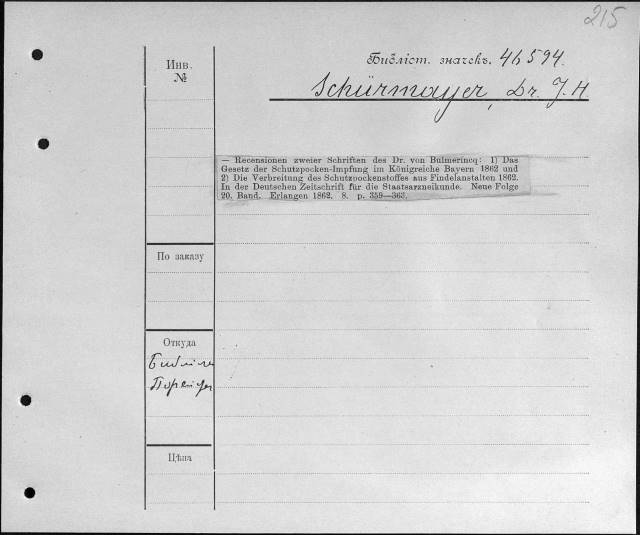 215
Библіот. значекъ. 46594.
Schürmayer, Dr. J. H.
Инв.
№
— Recensionen zweier Schriften des Dr. von Bulmerincq: 1) Das
Gesetz der Schutzpocken-Impfung im Königreiche Bayern 1862 und
2) Die Verbreitung des Schutzpockenstoffes aus Findelanstalten 1862.
In der Deutschen Zeitschrift für die Staatsarzneikunde. Neue Folge
20. Band. Erlangen 1862. 8. p. 359—363.
По заказу
Откуда
Цѣна